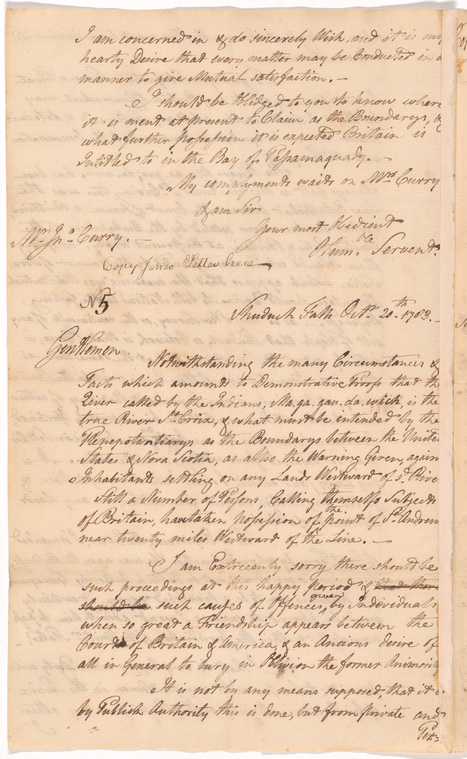 I am concerned in & do sincerely Wish and it is my
hearty Desire that every matter may be Conducted in a
manner to give Mutual satisfaction. —
I should be Oblidged to you to know where
it is ment at present to Claim as the Boundarys, or
what further possession it is expected Britain is
Intitled to in the Bay of Passamaquady. —
My complyments waits on Mrs. Curry
& am Sir
Your most Obedient
Hum.ble Servent.
Mr. Jno. Curry. —
Copy Letter here
No 5
Skuduck Falls Octr. 20th. 1783. —
Gentlemen
Notwithstanding the many Circumstances &
Facts which amounts to Demonstrative Proofs that the
River called by the Indians, Ma,ga,gau,da,wick, is the
true River St. Croix, & what must be intended by the
Plenepotentiarys as the Boundarys between the United
States & Nova Scotia, as also the Warning Given, again
Inhabitants settling on any Lands Westward of sd. Rive
Still a Number of Persons, Calling themselfs Subjects
of Britain, have taken possession of the point of St. Andrew
near twenty miles Westward of the Line. —
I am Extreemly sorry there should be
such proceedings at this happy Period &
should be such causes of Offences given by Individuals
when so great a Friendship appears between the
Courts of Britain & America, & an Ancious Desire of
all in General to bury in Oblivion the former Animosit
It is not by any means supposed, that it i
by Publick Authority this is done, but from private and